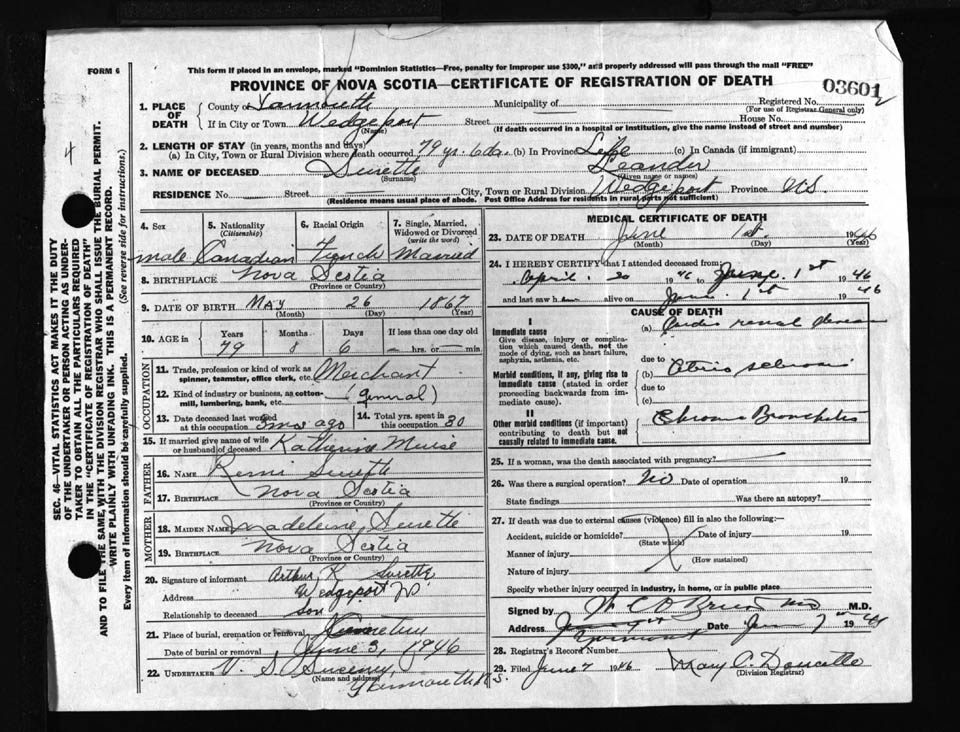 FORM 6
This form if placed in an envelope, marked "Dominion Statistics—Free, penalty for improper use $300," and properly addressed will pass through the mail "FREE"
PROVINCE OF NOVA SCOTIA—CERTIFICATE OF REGISTRATION OF DEATH
03601
1. PLACE OF DEATH
County of Yarmouth Municipality of Registered No.
(For use of Registrar General only)
If in City or Town Wedgeport Street House No.
(Name) (If death occurred in a hospital or institution, give the name instead of street and number)
2. LENGTH OF STAY (in years, months and days)
(a) In City, Town or Rural Division where death occurred 79 yr. 6da. (b) In Province Life (c) In Canada (if immigrant)
3. NAME OF DECEASED Surette Leander
(Surname) (Given name or names)
RESIDENCE No. Street City, Town or Rural Division Wedgeport Province N.S.
(Residence means usual place of abode. Post Office Address for residents in rural parts not sufficient)
4. Sex 5. Nationality (Citizenship) 6. Racial Origin 7. Single, Married, Widowed or Divorced (write the word)
male Canadian French Married
8. BIRTHPLACE Nova Scotia
(Province or Country)
9. DATE OF BIRTH May 26 1867
(Month) (Day) (Year)
10. AGE in Years Months Days If less than one day old
79 8 6 hrs. or min.
OCCUPATION
11. Trade, profession or kind of work as spinner, teamster, office clerk, etc. Merchant
12. Kind of industry or business, as cotton-mill, lumbering, bank, etc. (general)
13. Date deceased last worked at this occupation 3 mos ago 14. Total yrs. spent in this occupation 30
15. If married give name of wife or husband of deceased Katherine Muise
FATHER
16. NAME Remi Surette
17. BIRTHPLACE Nova Scotia
(Province or Country)
MOTHER
18. MAIDEN NAME Madeleine Surette
19. BIRTHPLACE Nova Scotia
(Province or Country)
20. Signature of informant Arthur K Surette
Address Wedgeport
Relationship to deceased Son
21. Place of burial, cremation or removal Cemetery
Date of burial or removal June 3, 1946
22. UNDERTAKER V. S. Sweeney
(Name and address)
Yarmouth N.S.
MEDICAL CERTIFICATE OF DEATH
23. DATE OF DEATH June 1st 1946
(Month) (Day) (Year)
24. I HEREBY CERTIFY that I attended deceased from:
April 20 1946 to June 1st 1946
and last saw h im alive on June 1st 1946
CAUSE OF DEATH
I
Immediate cause (a) Cardio renal disease
Give disease, injury or complication which caused death, not the mode of dying, such as heart failure, asphyxia, asthenia, etc.
due to
Morbid conditions, if any, giving rise to immediate cause (stated in order proceeding backwards from immediate cause).
(b)
due to
(c)
II
Other morbid conditions (if important) contributing to death but not causally related to immediate cause.
Chronic Bronchitis
25. If a woman, was the death associated with pregnancy?
26. Was there a surgical operation? No Date of operation 19
State findings Was there an autopsy?
27. If death was due to external causes (violence) fill in also the following:—
Accident, suicide or homicide? Date of injury 19
(State which)
Manner of injury
(How sustained)
Nature of injury
Specify whether injury occurred in industry, in home, or in public place
Signed by M.D.
Address Yarmouth Date June 7 19
28. Registrar's Record Number
29. Filed June 7 1946 Mary C. Doucette
(Division Registrar)
4
SEC. 46—VITAL STATISTICS ACT MAKES IT THE DUTY
OF THE UNDERTAKER OR PERSON ACTING AS UNDER-
TAKER TO OBTAIN ALL THE PARTICULARS REQUIRED
IN THE "CERTIFICATE OF REGISTRATION OF DEATH"
AND TO FILE THE SAME, WITH THE DIVISION REGISTRAR WHO SHALL ISSUE THE BURIAL PERMIT.
WRITE PLAINLY WITH UNFADING INK. THIS IS A PERMANENT RECORD.
Every item of information should be carefully supplied. (See reverse side for instructions.)